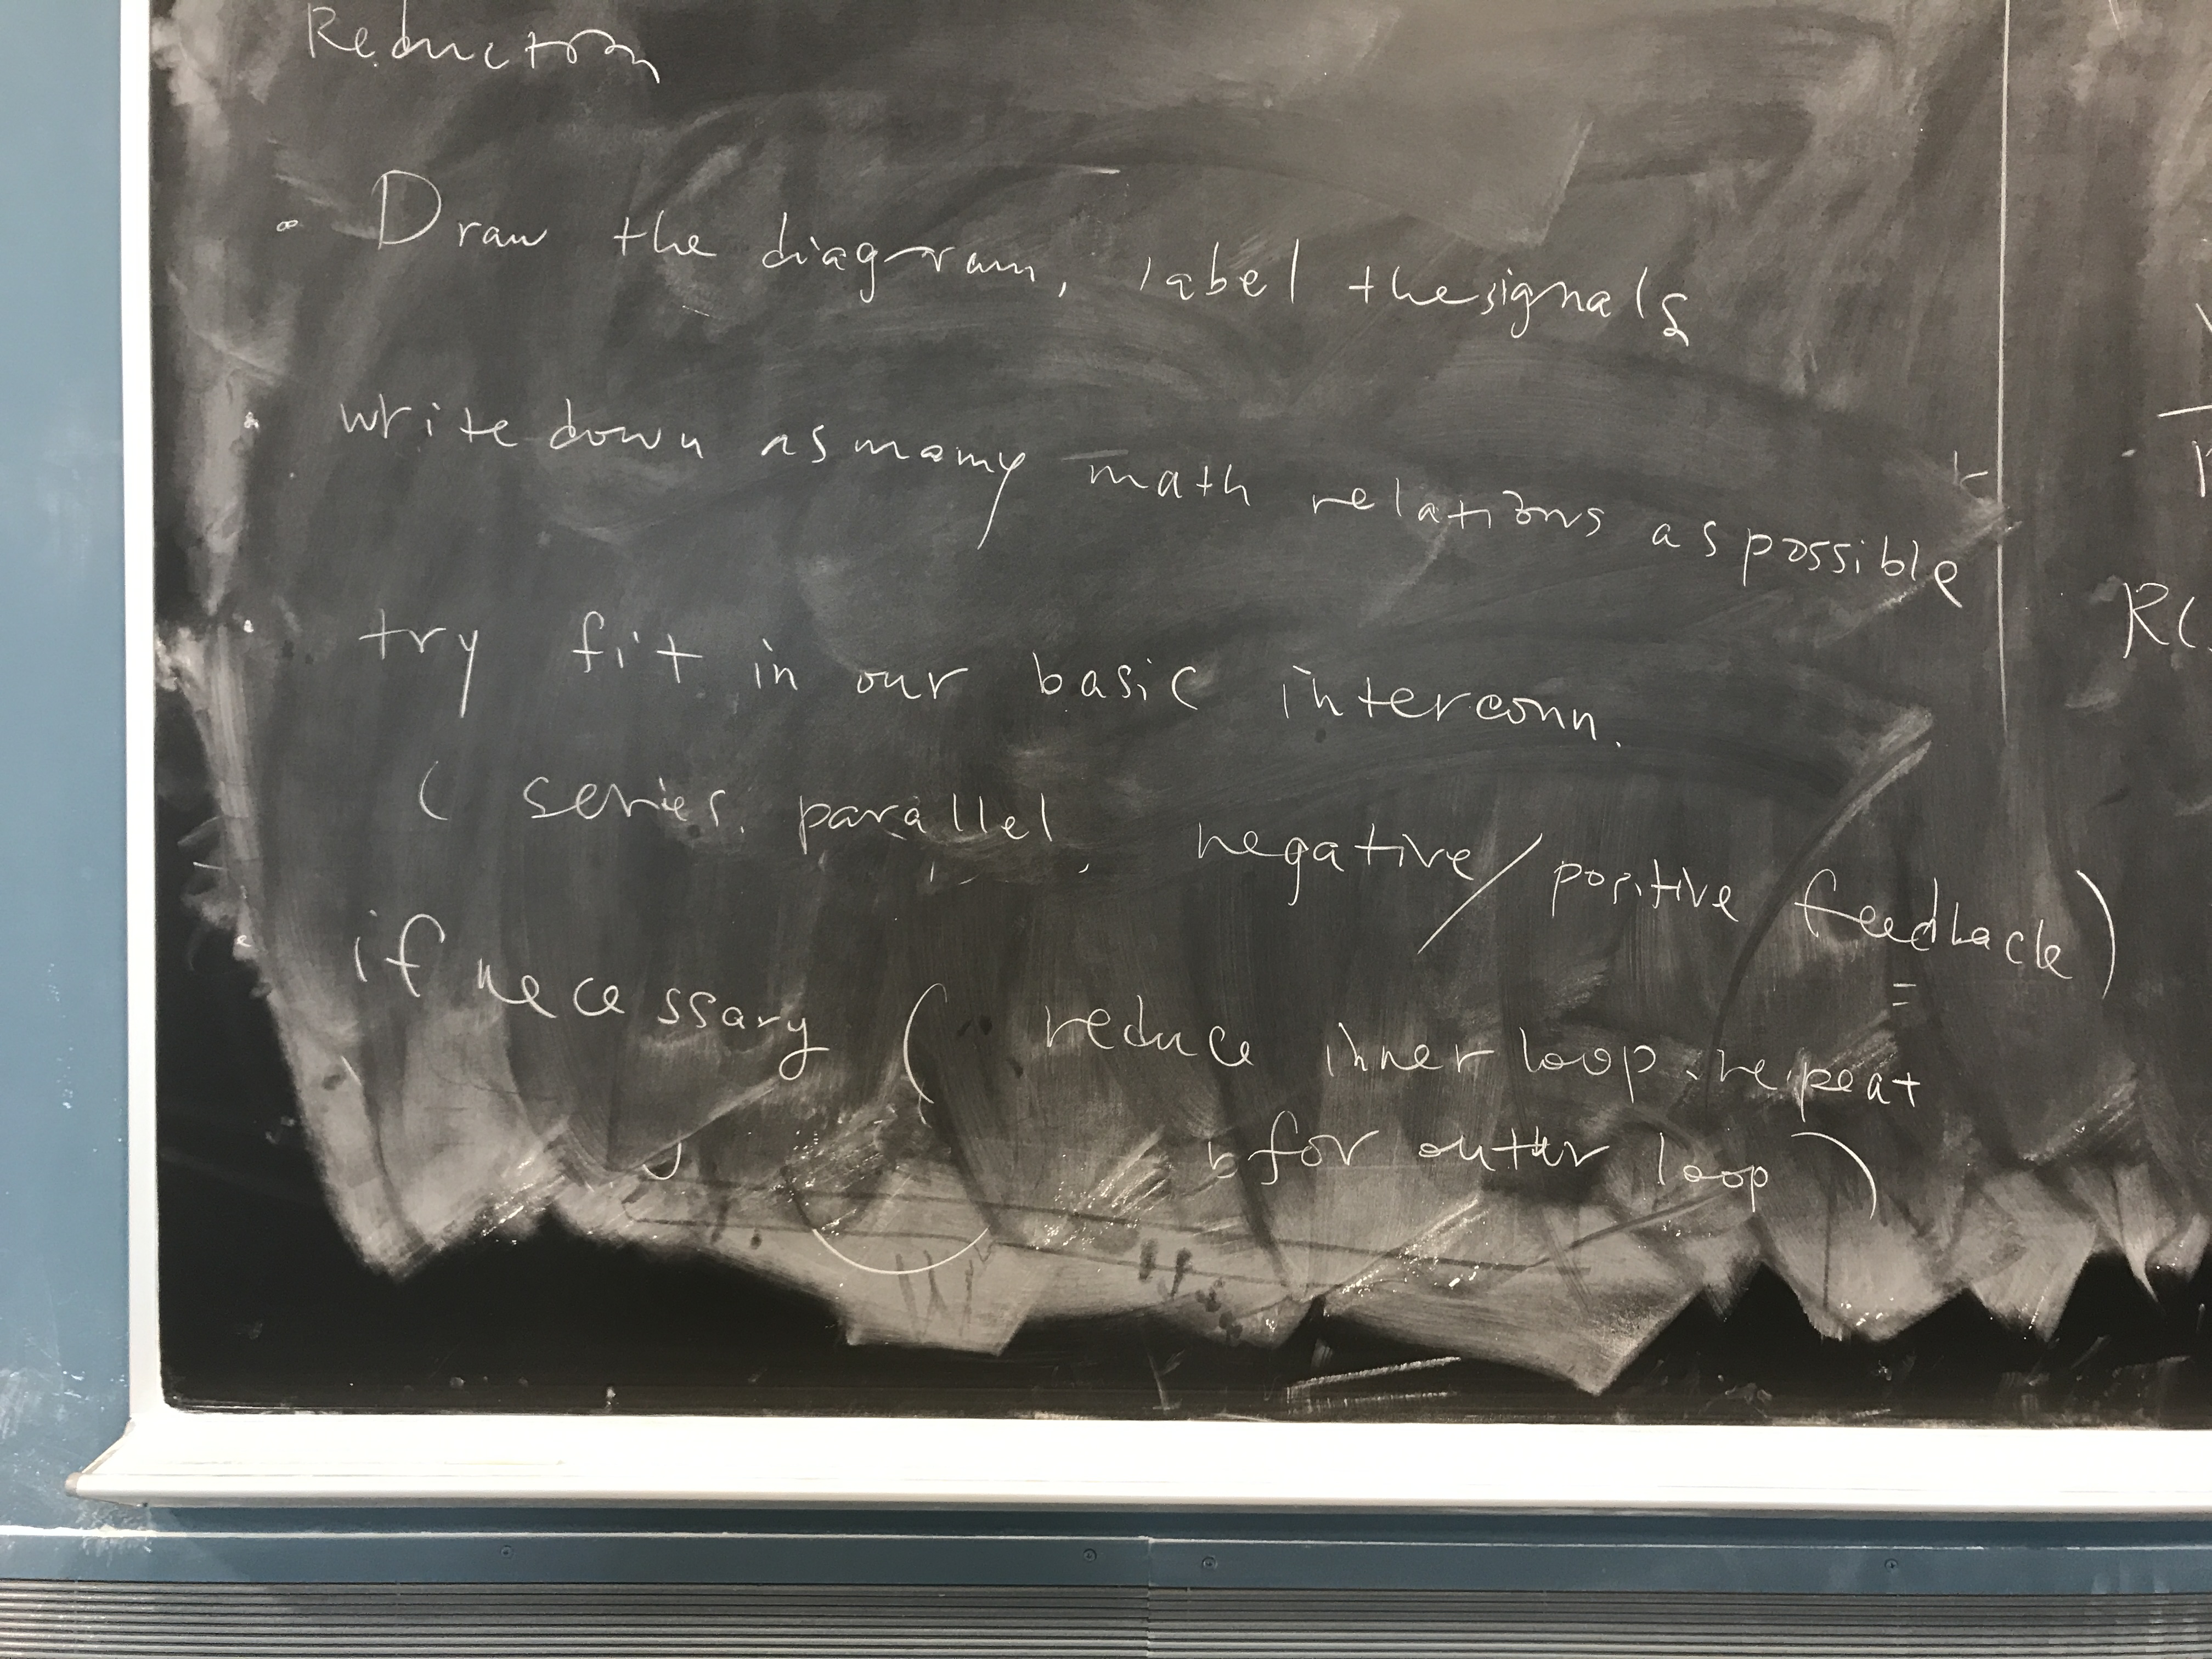 Reduction
• Draw the diagram, label the signals
• write down as many math relations as possible
• try fit in our basic interconn.
( series, parallel, negative/positive feedback)
• if necessary ( reduce inner loop, repeat
for outer loop )